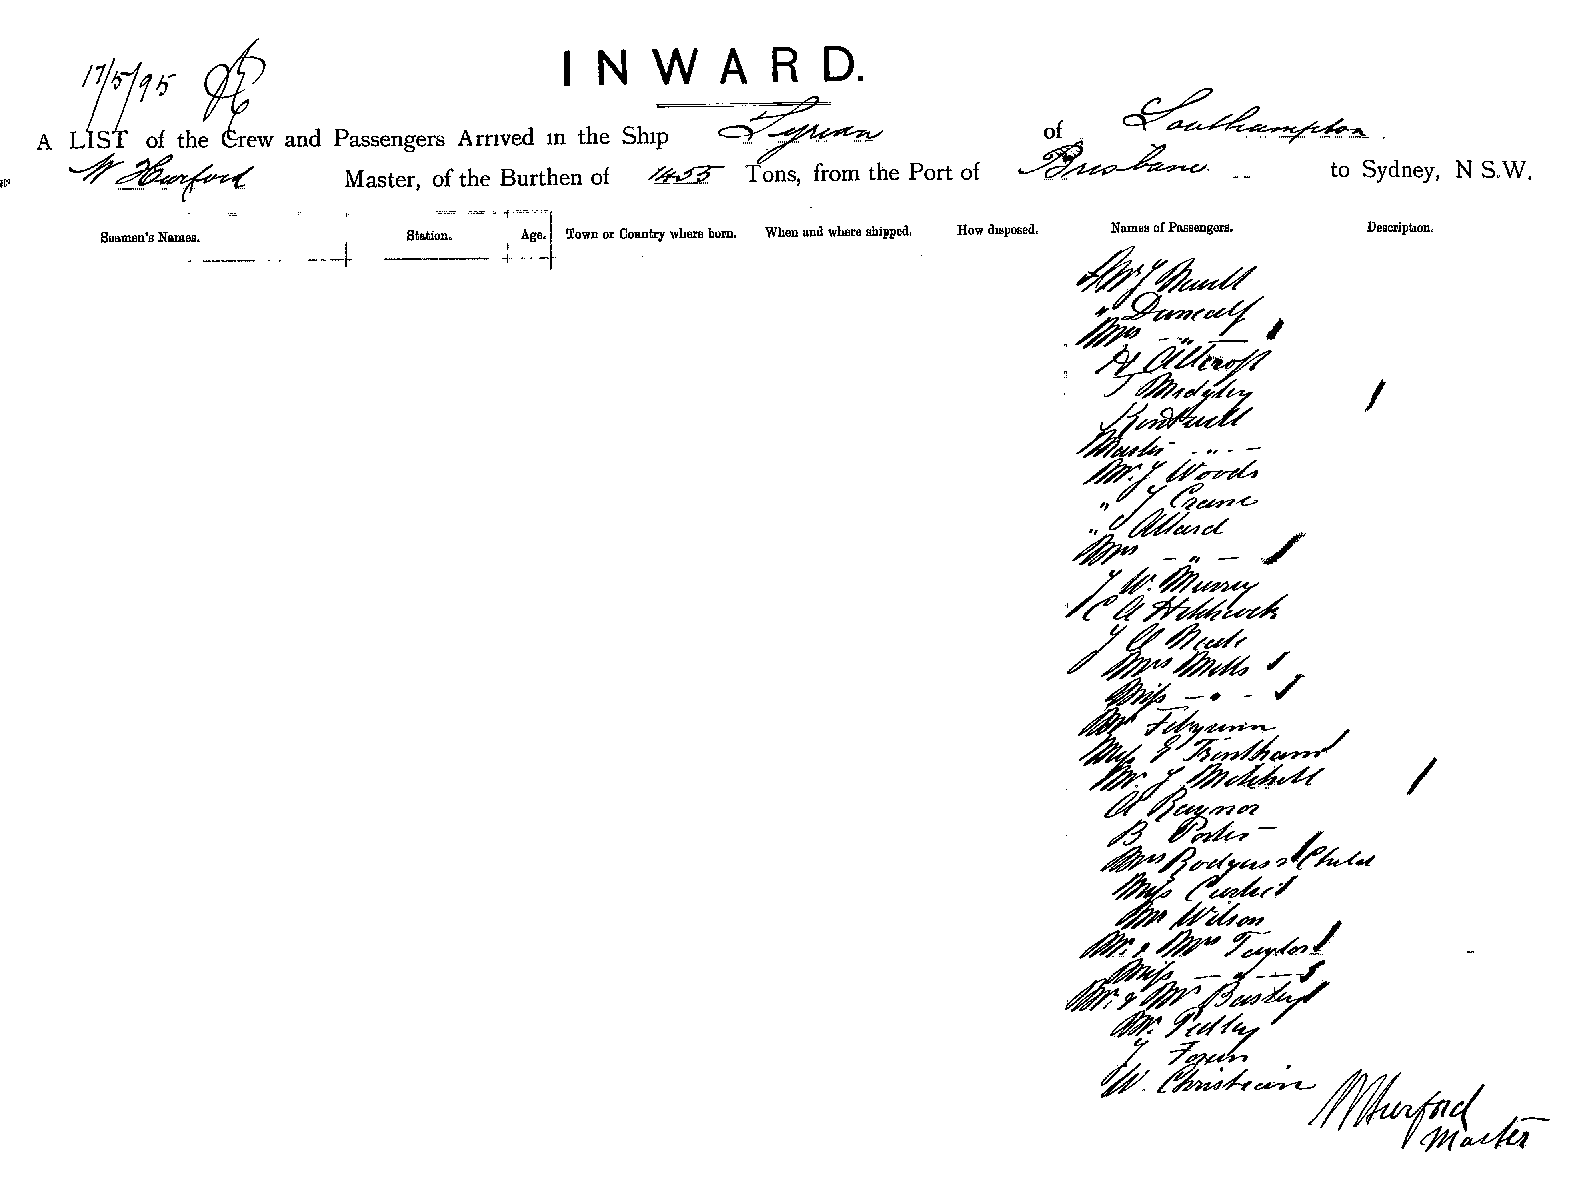 INWARD.
17/5/95
A LIST of the Crew and Passengers Arrived in the Ship Tyrian of Southampton
W Hurford Master, of the Burthen of 1455 Tons, from the Port of Brisbane to Sydney, N S.W.
Seamen's Names. Station. Age. Town or Country where born. When and where shipped. How disposed. Names of Passengers. Description.
Mr J
" Duncalf
Mrs — " —
H Allcroft
T Midgley
Master — " —
Mr. J Woods
" J Crane
" Allard
Mrs — " —
J W. Murry
C A Hitchcock
J A
Mrs Mills
Miss — " —
Mr
Miss E Trentham
Mr. J Mitchell
A Raynor
B Porter
Mrs Rodgers & Child
Miss
Mr Wilson
Mr. & Mrs Taylor
Miss — " —
Mr. & Mrs
Mr.
J
W. Christian
W Hurford
Master